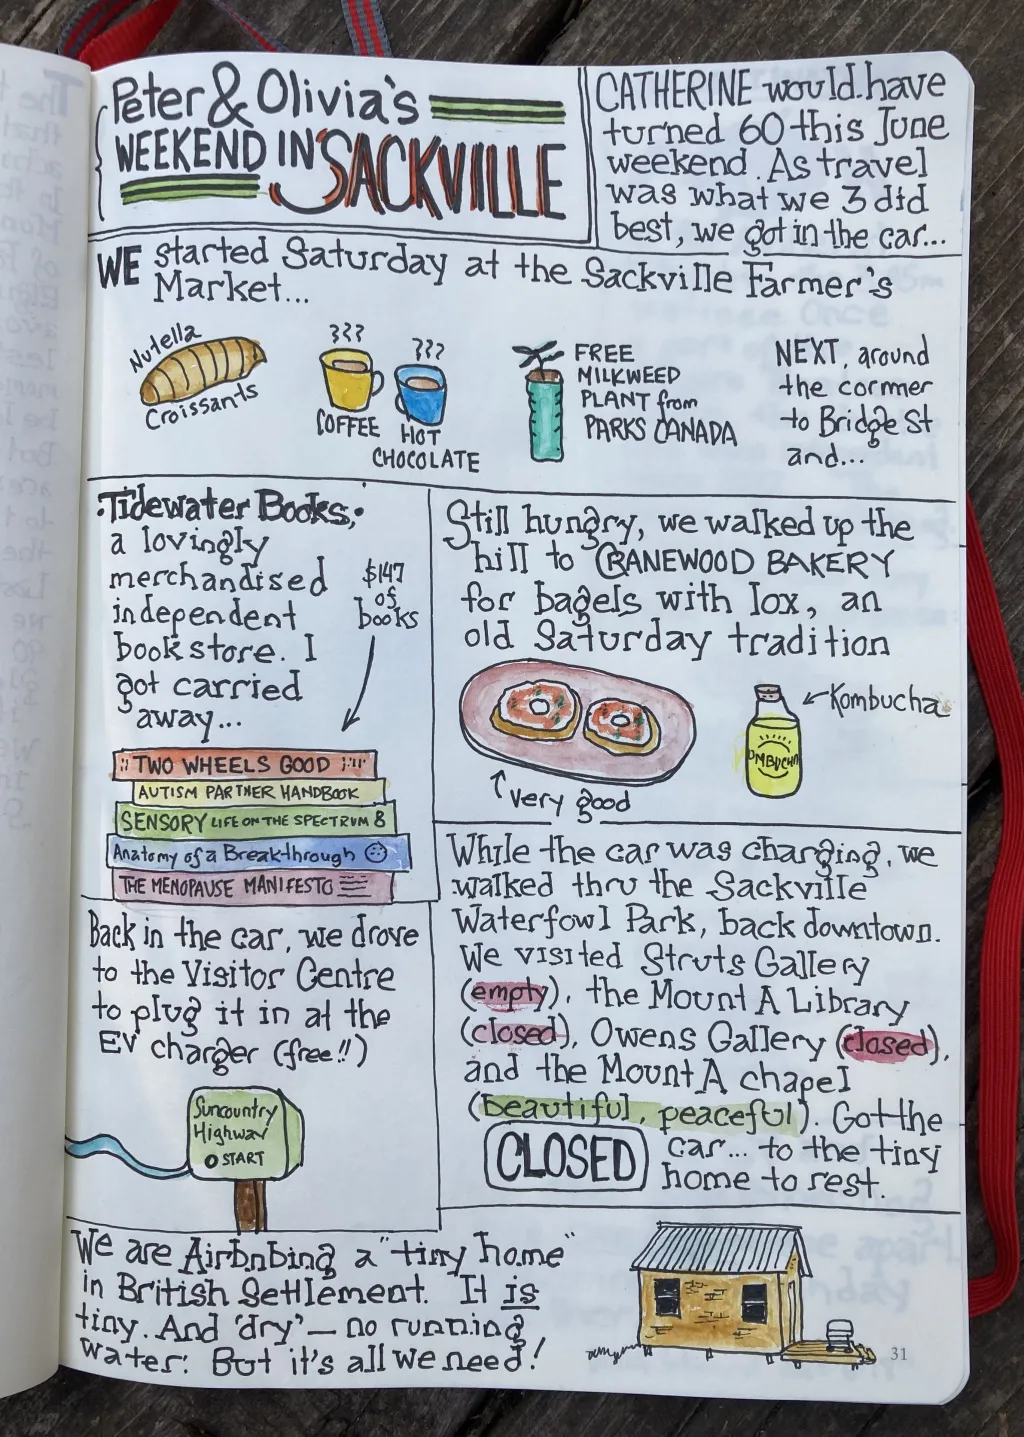 Peter & Olivia's
WEEKEND IN SACKVILLE
CATHERINE would have
turned 60 this June
weekend. As travel
was what we 3 did
best, we got in the car...
WE started Saturday at the Sackville Farmer's
Market...
Nutella
Croissants
COFFEE
HOT
CHOCOLATE
FREE
MILKWEED
PLANT from
PARKS CANADA
NEXT, around
the cormer
to Bridge St
and...
Tidewater Books,
a lovingly
merchandised
independent
bookstore. I
got carried
away...
$147
of
books
TWO WHEELS GOOD
AUTISM PARTNER HANDBOOK
SENSORY LIFE ON THE SPECTRUM 8
Anatomy of a Breakthrough
THE MENOPAUSE MANIFESTO
Still hungry, we walked up the
hill to CRANEWOOD BAKERY
for bagels with lox, an
old Saturday tradition
very good
Kombucha
OMBUCHA
Back in the car, we drove
to the Visitor Centre
to plug it in at the
EV charger (free!!)
Suncountry
Highway
START
While the car was charging, we
walked thru the Sackville
Waterfowl Park, back downtown.
We visited Struts Gallery
(empty), the Mount A Library
(closed), Owens Gallery (closed),
and the Mount A chapel
(beautiful, peaceful). Got the
CLOSED
car... to the tiny
home to rest.
We are Airbnbing a "tiny home"
in British Settlement. It is
tiny. And 'dry' — no running
water. But it's all we need!
31